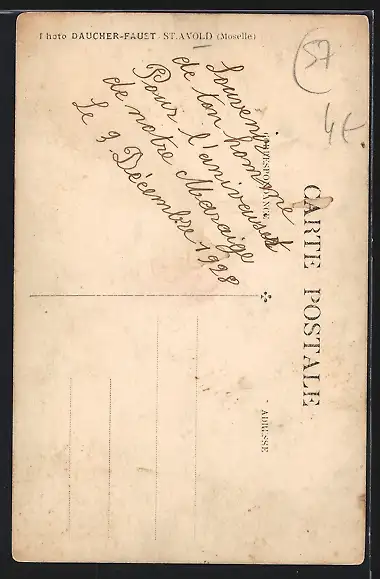 Photo DAUCHER-FAUST ST.AVOLD (Moselle)
57
4€
Souvenir
de ton homme
Pour l'aniversest
de notre Maraige
Le 9 Décembre 1928
CORRESPONDANCE
CARTE POSTALE
ADRESSE